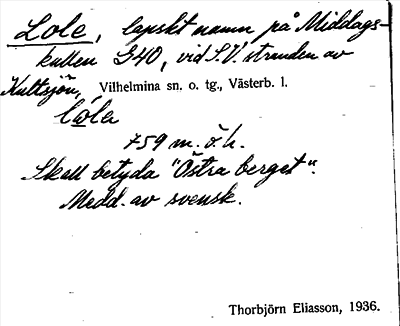 Lole, lapskt namn på Middags-
kullen G40, vid S.V. stranden av
Kultsjön, Vilhelmina sn. o. tg., Västerb. l.
759 m. ö. h.
Skall betyda "Östra berget".
Medd. av svensk.
Thorbjörn Eliasson, 1936.